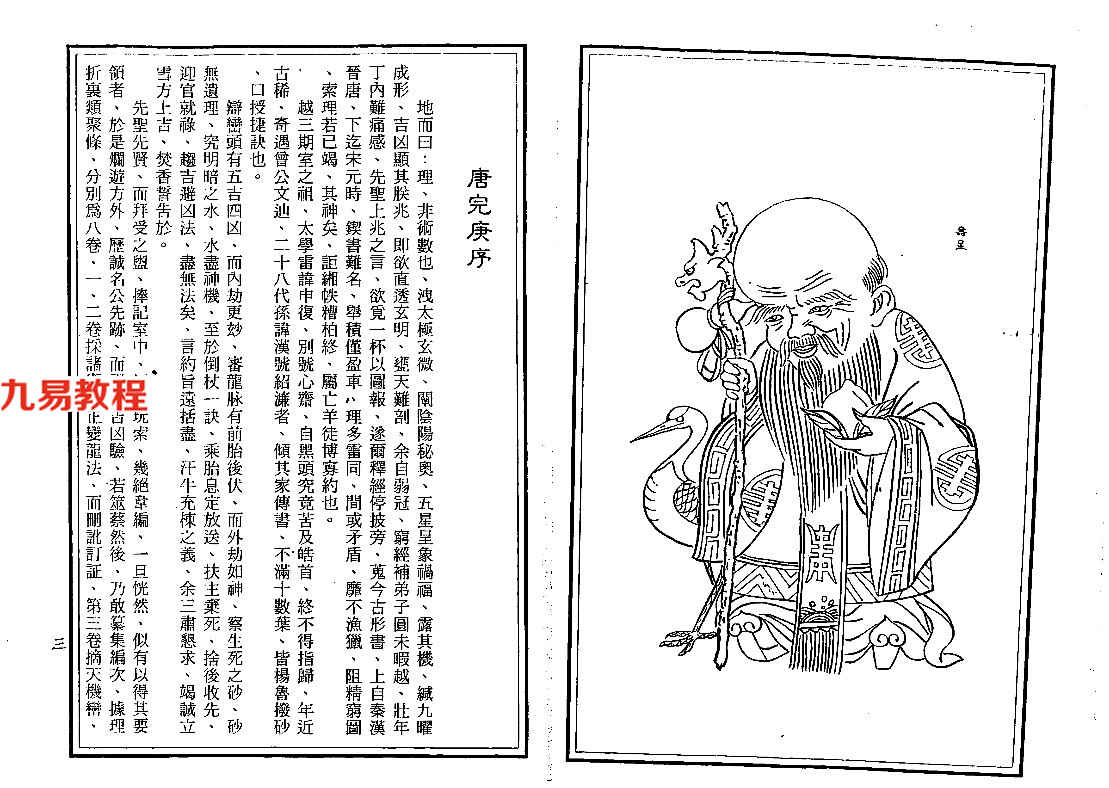 壽星
唐完庚序
地而曰：理、非術數也、洩太極玄微、闡陰陽秘奧、五星呈象禍福、露其機、緘九曜
成形、吉凶顯其朕兆、即欲直透玄明、甕天難剖、余自弱冠、窮經補弟子圓未暇越、壯年
丁內難痛感、先聖上兆之言、欲覓一杯以圖報、遂爾釋經停披旁、蒐今古形書、上自秦漢
晉唐、下迄宋元時、鍥書難名、舉積僅盈車、理多雷同、間或矛盾、靡不漁獵、阻精窮圖
、索理若已竭、其神矣、詎緗帙糟柏終、屬亡羊徒博寡約也。
越三期室之祖、太學雷諱申復、別號心齋、自黑頭究竟苦及皓首、終不得指歸、年近
古稀、奇遇曾公文辿、二十八代孫諱漢號紹濂者、傾其家傳書、不滿十數葉、皆楊魯撥砂
、口授捷訣也。
辯巒頭有五吉四凶、而內劫更妙、審龍脉有前胎後伏、而外劫如神、察生死之砂、砂
無遺理、究明暗之水、水盡神機、至於倒杖一訣、乘胎息定放送、扶主棄死、捨後收先、
迎官就祿、趨吉避凶法、盡無法矣、言約旨遠括盡、汗牛充棟之義、余三肅懇求、竭誠立
雪方上古、焚香誓告於。
先聖先賢、而拜受之盟、捧記室中、玩索、幾絕韋編、一旦恍然、似有以得其要
領者、於是爛遊方外、歷誠名公先跡、而吉凶驗、若筮蔡然後、乃敢纂集編次、據理
折衷類聚條、分別爲八卷、一、二卷採諸正變龍法、而刪訛訂証、第三卷摘天機巒、
三
九易教程